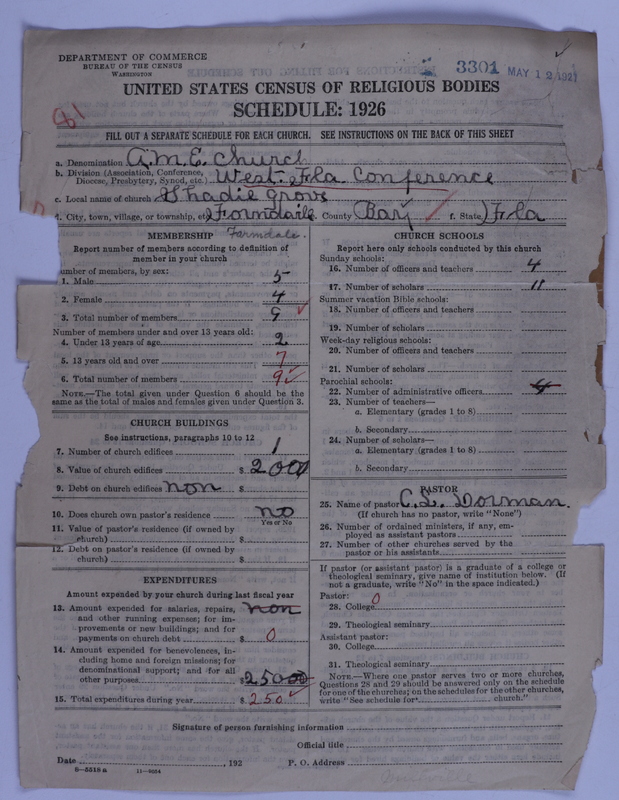 DEPARTMENT OF COMMERCE
BUREAU OF THE CENSUS
WASHINGTON
3301 MAY 12 1927
UNITED STATES CENSUS OF RELIGIOUS BODIES
SCHEDULE: 1926
FILL OUT A SEPARATE SCHEDULE FOR EACH CHURCH. SEE INSTRUCTIONS ON THE BACK OF THIS SHEET
a. Denomination A.M.E. Church
b. Division (Association, Conference, Diocese, Presbytery, Synod, etc.) West Fla Conference
c. Local name of church Shadie grove
d. City, town, village, or township, etc. Farmdaile County Bay f. State Fla
Farmdale.
MEMBERSHIP
Report number of members according to definition of
member in your church
Number of members, by sex:
1. Male 5
2. Female 4
3. Total number of members 9
Number of members under and over 13 years old:
4. Under 13 years of age 2
5. 13 years old and over 7
6. Total number of members 9
NOTE.—The total given under Question 6 should be the
same as the total of males and females given under Question 3.
CHURCH BUILDINGS
See instructions, paragraphs 10 to 12
7. Number of church edifices 1
8. Value of church edifices $ 2000
9. Debt on church edifices non $
10. Does church own pastor's residence no
Yes or No
11. Value of pastor's residence (if owned by
church) $
12. Debt on pastor's residence (if owned by
church) $
EXPENDITURES
Amount expended by your church during last fiscal year
13. Amount expended for salaries, repairs, non
and other running expenses; for im-
provements or new buildings; and for
payments on church debt $ 0
14. Amount expended for benevolences, in-
cluding home and foreign missions; for
denominational support; and for all
other purposes $ 25000
15. Total expenditures during year $ 250
CHURCH SCHOOLS
Report here only schools conducted by this church
Sunday schools:
16. Number of officers and teachers 4
17. Number of scholars 11
Summer vacation Bible schools:
18. Number of officers and teachers
19. Number of scholars
Week-day religious schools:
20. Number of officers and teachers
21. Number of scholars
Parochial schools:
22. Number of administrative officers 4
23. Number of teachers—
a. Elementary (grades 1 to 8)
b. Secondary
24. Number of scholars—
a. Elementary (grades 1 to 8)
b. Secondary
PASTOR
25. Name of pastor C.L. Dorman.
(If church has no pastor, write "None")
26. Number of ordained ministers, if any, em-
ployed as assistant pastors
27. Number of other churches served by the
pastor or his assistants
If pastor (or assistant pastor) is a graduate of a college or
theological seminary, give name of institution below. (If
not a graduate, write "No" in the space indicated.)
Pastor: 0
28. College
29. Theological seminary
Assistant pastor:
30. College
31. Theological seminary
NOTE.—Where one pastor serves two or more churches,
Questions 28 and 29 should be answered only on the schedule
for one of the churches; on the schedules for the other churches,
write "See schedule for church."
Signature of person furnishing information
Official title
Date , 192 P. O. Address
8-5518 a 11-9054